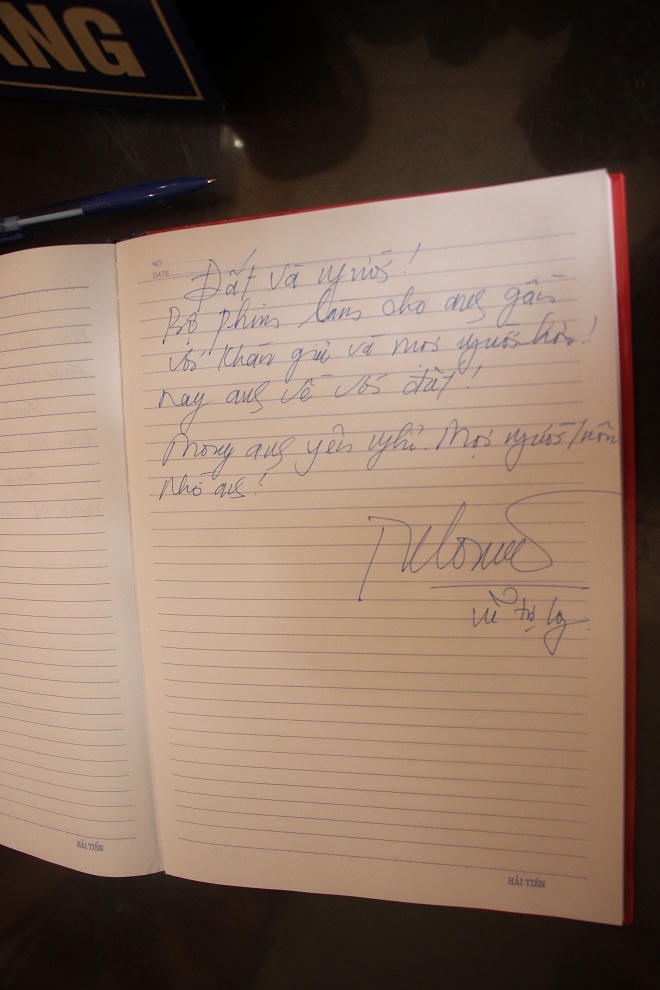 ANG
NO
DATE
Đất và người!
Bộ phim làm cho ông gần
với khán giả và mọi người hơn!
Nay ông về với đất!
Mong ông yên nghỉ. Mọi người luôn
nhớ ông!
HẢI TIẾN
HẢI TIẾN